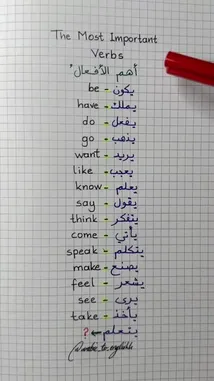 The Most Important
Verbs
أهم الأفعال
be - يكون
have - يملك
do - يفعل
go - يذهب
want - يريد
like - يعجب
know - يعلم
say - يقول
think - يتفكر
come - يأتي
speak - يتكلم
make - يصنع
feel - يشعر
see - يرى
take - يأخذ
? ← يتعلم